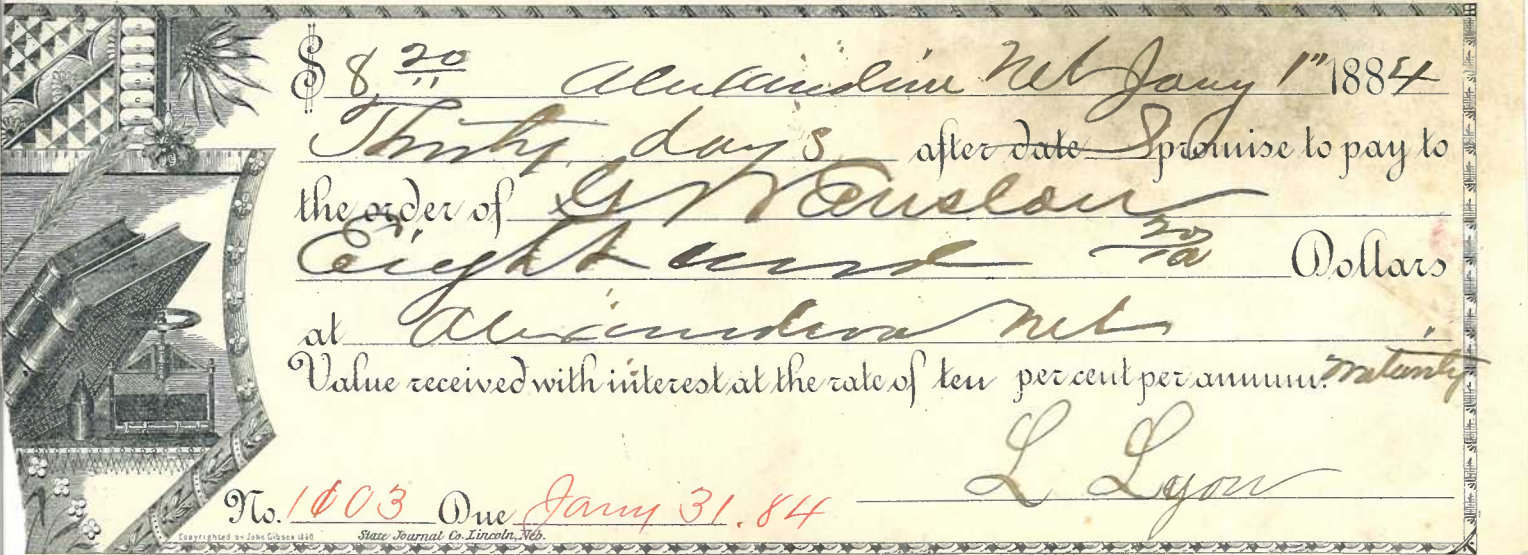 $ 8 20/" Alexandria Neb Jany 1" 1884
Thirty days after date I promise to pay to
the order of G W
Eight and 20/00 Dollars
at Alexandria Neb
Value received with interest at the rate of ten per cent per annum. maturity
L Lyon
No. 1003 Due Jany 31. 84
Copyrighted by John Gibson 1880 State Journal Co. Lincoln, Neb.